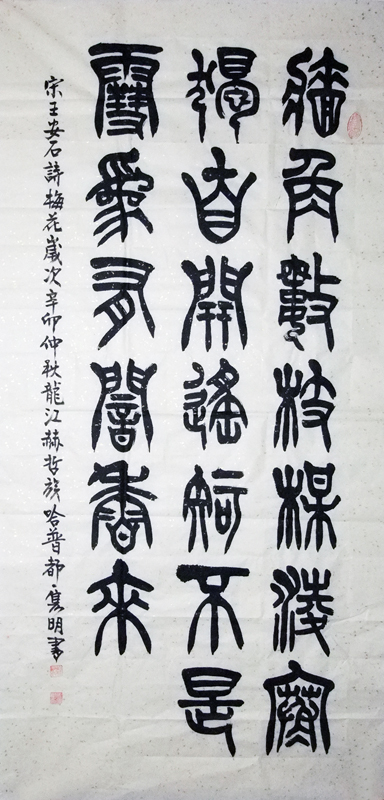 牆角數枝楳淩寒
獨自開遙知不是
雪爲有闇香來
宋王安石詩梅花歲次辛卯仲秋龍江赫哲族哈普都·隽明書